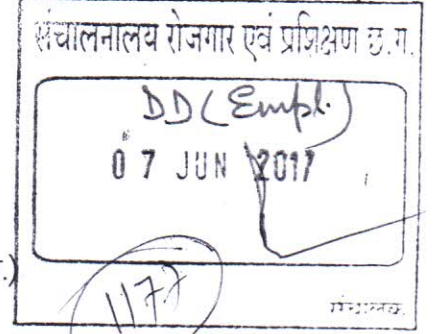 संचालनालय रोजगार एवं प्रशिक्षण छ.ग.
DD (Empl.)
07 JUN 2017
1177
संचालक